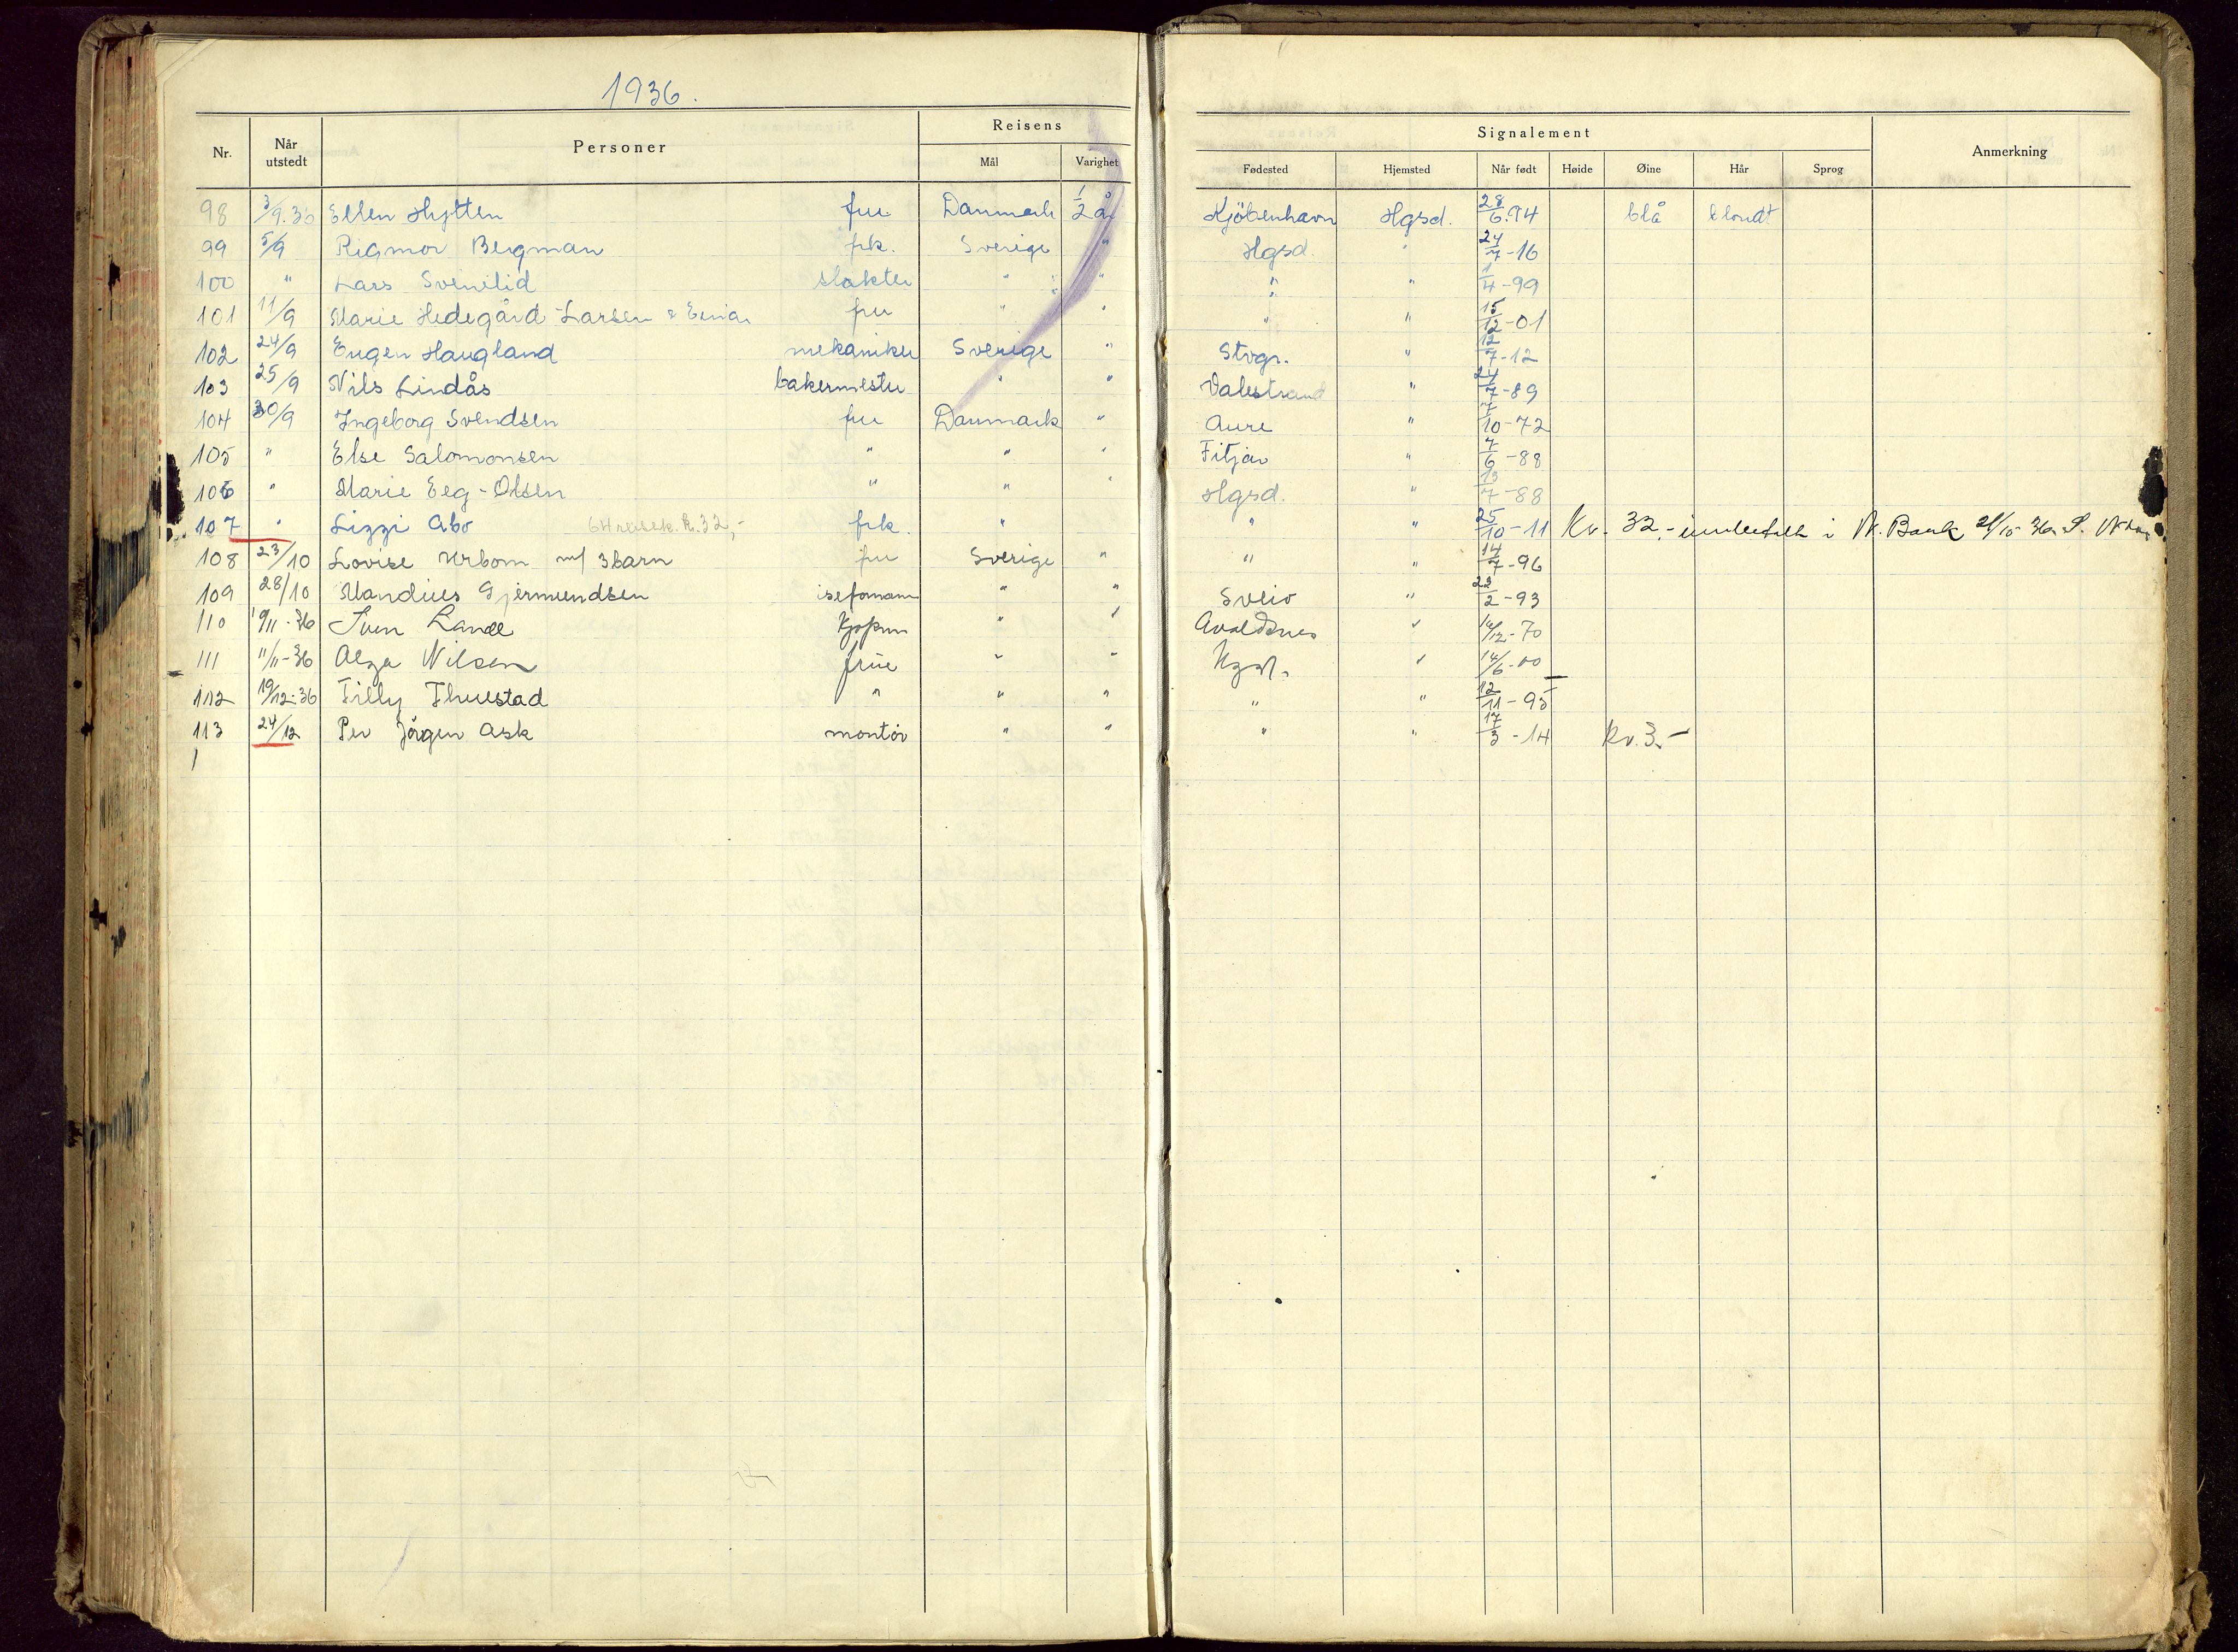 1936.
Nr. Når utstedt Personer Reisens Mål Varighet Signalement Fødested Hjemsted Når født Høide Øine Hår Sprog Anmerkning
98 3/9.36 Ellen Hytten fru Danmark 1/2 å Kjöbenhavn Hgsd. 28/6.94 blå blondt
99 5/9 Rigmor Bergman frk. Sverige " Hgsd. " 24/7-16
100 " Lars slakter " " " " 1/4-99
101 11/9 Marie Hedegård-Larsen & Einar fru " " " " 15/12-01
102 24/9 Eugen Haugland mekaniker Sverige " Stvgr. " 12/7-12
103 25/9 Nils Lindås bakermester " " Valestrand " 24/7-89
104 30/9 Ingeborg Svendsen fru Danmark " Aure " 7/10-72
105 " Else Salomonsen " " " Fitjar " 7/6-88
106 " Marie Eeg-Olsen " " " Hgsd. " 13/7-88
107 " Lizzi Abo 64 reisek. kr. 32,- frk. " " " 25/10-11 Kr. 32,- i N. Bank 36
108 23/10 Lovise Urbom m/ 3 barn fru Sverige " " " 14/7-96
109 28/10 Mandius Gjermundsen " " Sveio " 22/2-93
110 10/11-36 Iven Lande Kjøpm " " Avaldsnes " 14/12-70
111 11/11-36 Alga Nilsen frue " " Hgsd. " 14/6-00
112 19/12-36 Tilly Thuestad " " " " " 12/11-95
113 24/12 Per Jörgen Ask montör " " " " 17/3-14 kr. 3.-